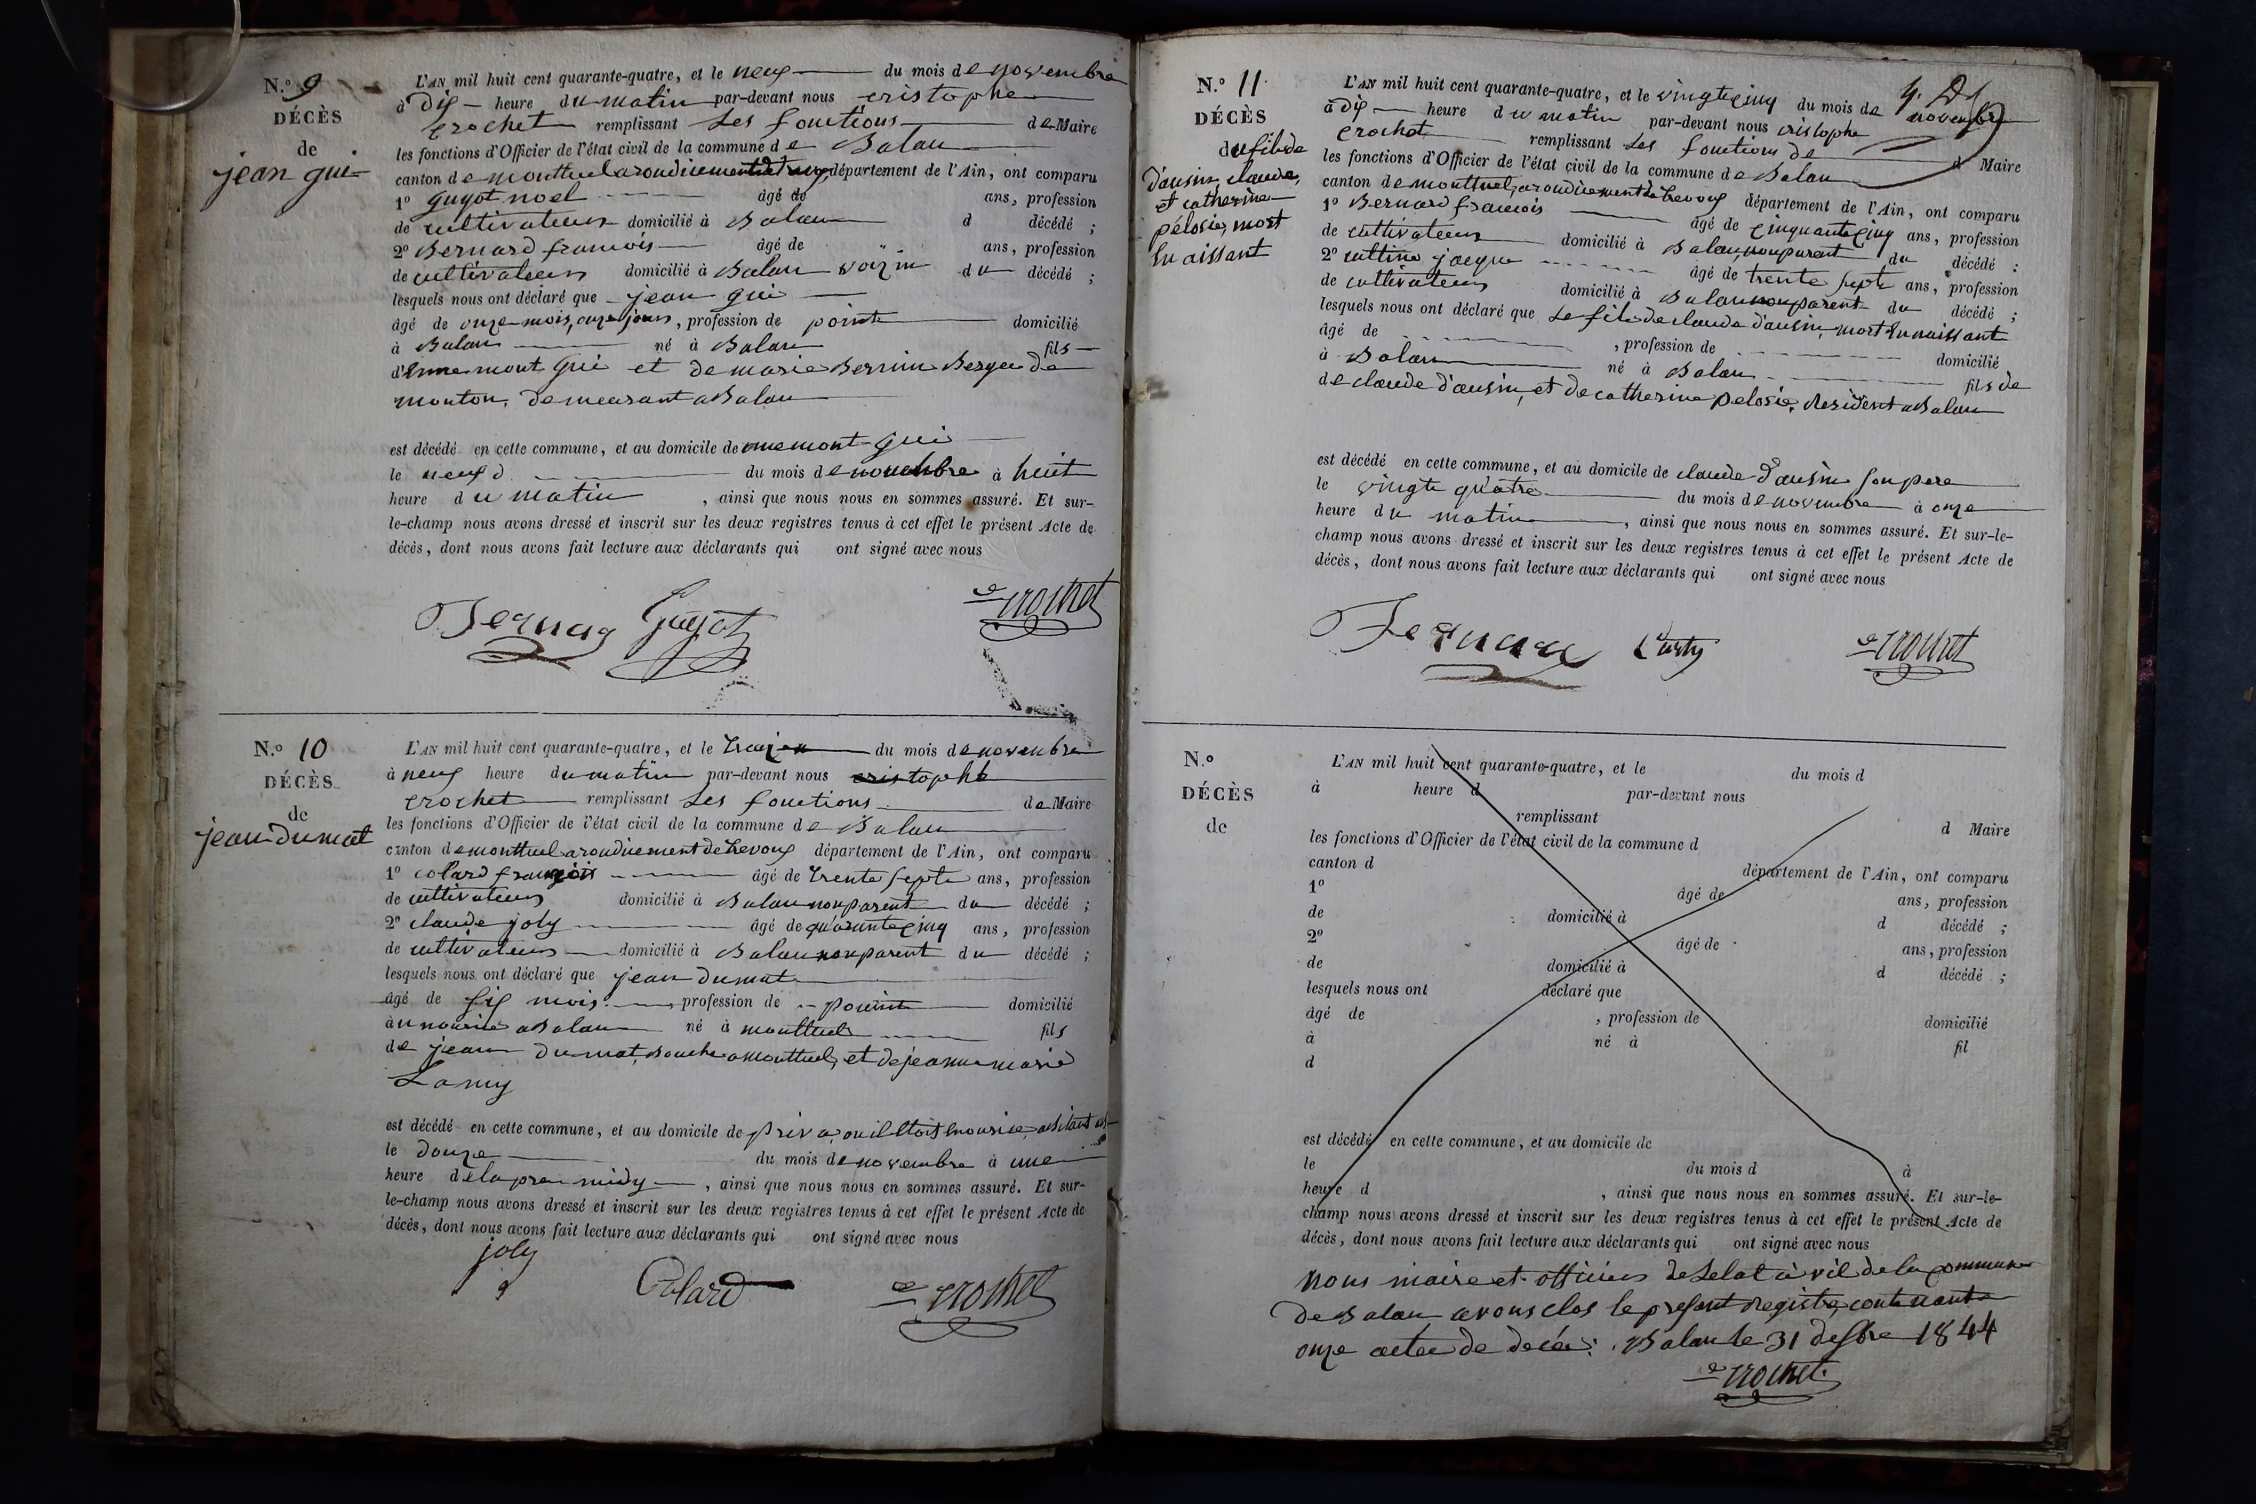 N.° 9
DÉCÈS
de
jean gui
L'AN mil huit cent quarante-quatre, et le neuf du mois de novembre
à Dix heure du matin par-devant nous cristophe
crochet remplissant Les fonctions de Maire
les fonctions d'Officier de l'état civil de la commune de Balan
canton de montluel département de l'Ain, ont comparu
1° guyot noel âgé de ans, profession
de cultivateur domicilié à Balan d décédé ;
2° Bernard francois âgé de ans, profession
de cultivateur domicilié à Balan voizin du décédé ;
lesquels nous ont déclaré que jean gui
âgé de onze mois, onze jours, profession de point domicilié
à Balan né à Balan fils
mont gui et de marie Bergee de
mouton, demeurant a Balan
est décédé en cette commune, et au domicile de mont gui
le neuf d du mois de novembre à huit
heure du matin, ainsi que nous nous en sommes assuré. Et sur-
le-champ nous avons dressé et inscrit sur les deux registres tenus à cet effet le présent Acte de
décès, dont nous avons fait lecture aux déclarants qui ont signé avec nous
Guyot crochet
N.° 10
DÉCÈS
de
jean dumat
L'AN mil huit cent quarante-quatre, et le treize du mois de novembre
à neuf heure du matin par-devant nous cristophe
crochet remplissant Les fonctions de Maire
les fonctions d'Officier de l'état civil de la commune de Balan
canton de montluel arondicement de trevoux département de l'Ain, ont comparu
1° colard françois âgé de trente septe ans, profession
de cultivateur domicilié à Balan nonparent du décédé ;
2° claude joly âgé de quarante cinq ans, profession
de cultivateur domicilié à Balan nonparent du décédé ;
lesquels nous ont déclaré que jean dumat
âgé de six mois, profession de point domicilié
à Balan né à montluel fils
de jean dumat, a montluel, et de jeanne marie
Lamy
est décédé en cette commune, et au domicile de priva, ou il etoit
le douze du mois de novembre à une
heure de lapres midy, ainsi que nous nous en sommes assuré. Et sur-
le-champ nous avons dressé et inscrit sur les deux registres tenus à cet effet le présent Acte de
décès, dont nous avons fait lecture aux déclarants qui ont signé avec nous
joly
Colard crochet
N.° 11
DÉCÈS
du fils de
D'ausin claude,
et catherine
pelosie, mort
en aissant
L'AN mil huit cent quarante-quatre, et le vingt cinq du mois de novembre
à dix heure du matin par-devant nous cristophe
crochet remplissant Les fonctions de d Maire
les fonctions d'Officier de l'état civil de la commune de Balan
canton de montluel, arondicement de trevoux département de l'Ain, ont comparu
1° Bernard francois âgé de cinquante cinq ans, profession
de cultivateur domicilié à Balan, nonparent du décédé ;
2° jacque âgé de trente septe ans, profession
de cultivateur domicilié à Balan nonparent du décédé ;
lesquels nous ont déclaré que Le fils de claude d'ausin, mort en naissant
âgé de , profession de domicilié
à Balan né à Balan fils de
de claude d'ausin, et de catherine pelosie, residant a Balan
est décédé en cette commune, et au domicile de claude d'ausin son pere
le vingte quatre du mois de novembre à onze
heure du matin, ainsi que nous nous en sommes assuré. Et sur-le-
champ nous avons dressé et inscrit sur les deux registres tenus à cet effet le présent Acte de
décès, dont nous avons fait lecture aux déclarants qui ont signé avec nous
crochet
N.°
DÉCÈS
de
L'AN mil huit cent quarante-quatre, et le du mois d
à heure d par-devant nous
remplissant d Maire
les fonctions d'Officier de l'état civil de la commune d
canton d département de l'Ain, ont comparu
1° âgé de ans, profession
de domicilié à d décédé ;
2° âgé de ans, profession
de domicilié à d décédé ;
lesquels nous ont déclaré que
âgé de , profession de domicilié
à né à fil
d
est décédé en cette commune, et au domicile de
le du mois d à
heure d , ainsi que nous nous en sommes assuré. Et sur-le-
champ nous avons dressé et inscrit sur les deux registres tenus à cet effet le présent Acte de
décès, dont nous avons fait lecture aux déclarants qui ont signé avec nous
Nous maire et officier de Letat civil de la commune
de Balan avons clos le present registre contenant
onze actes de decés. Balan le 31 desbre 1844
crochet